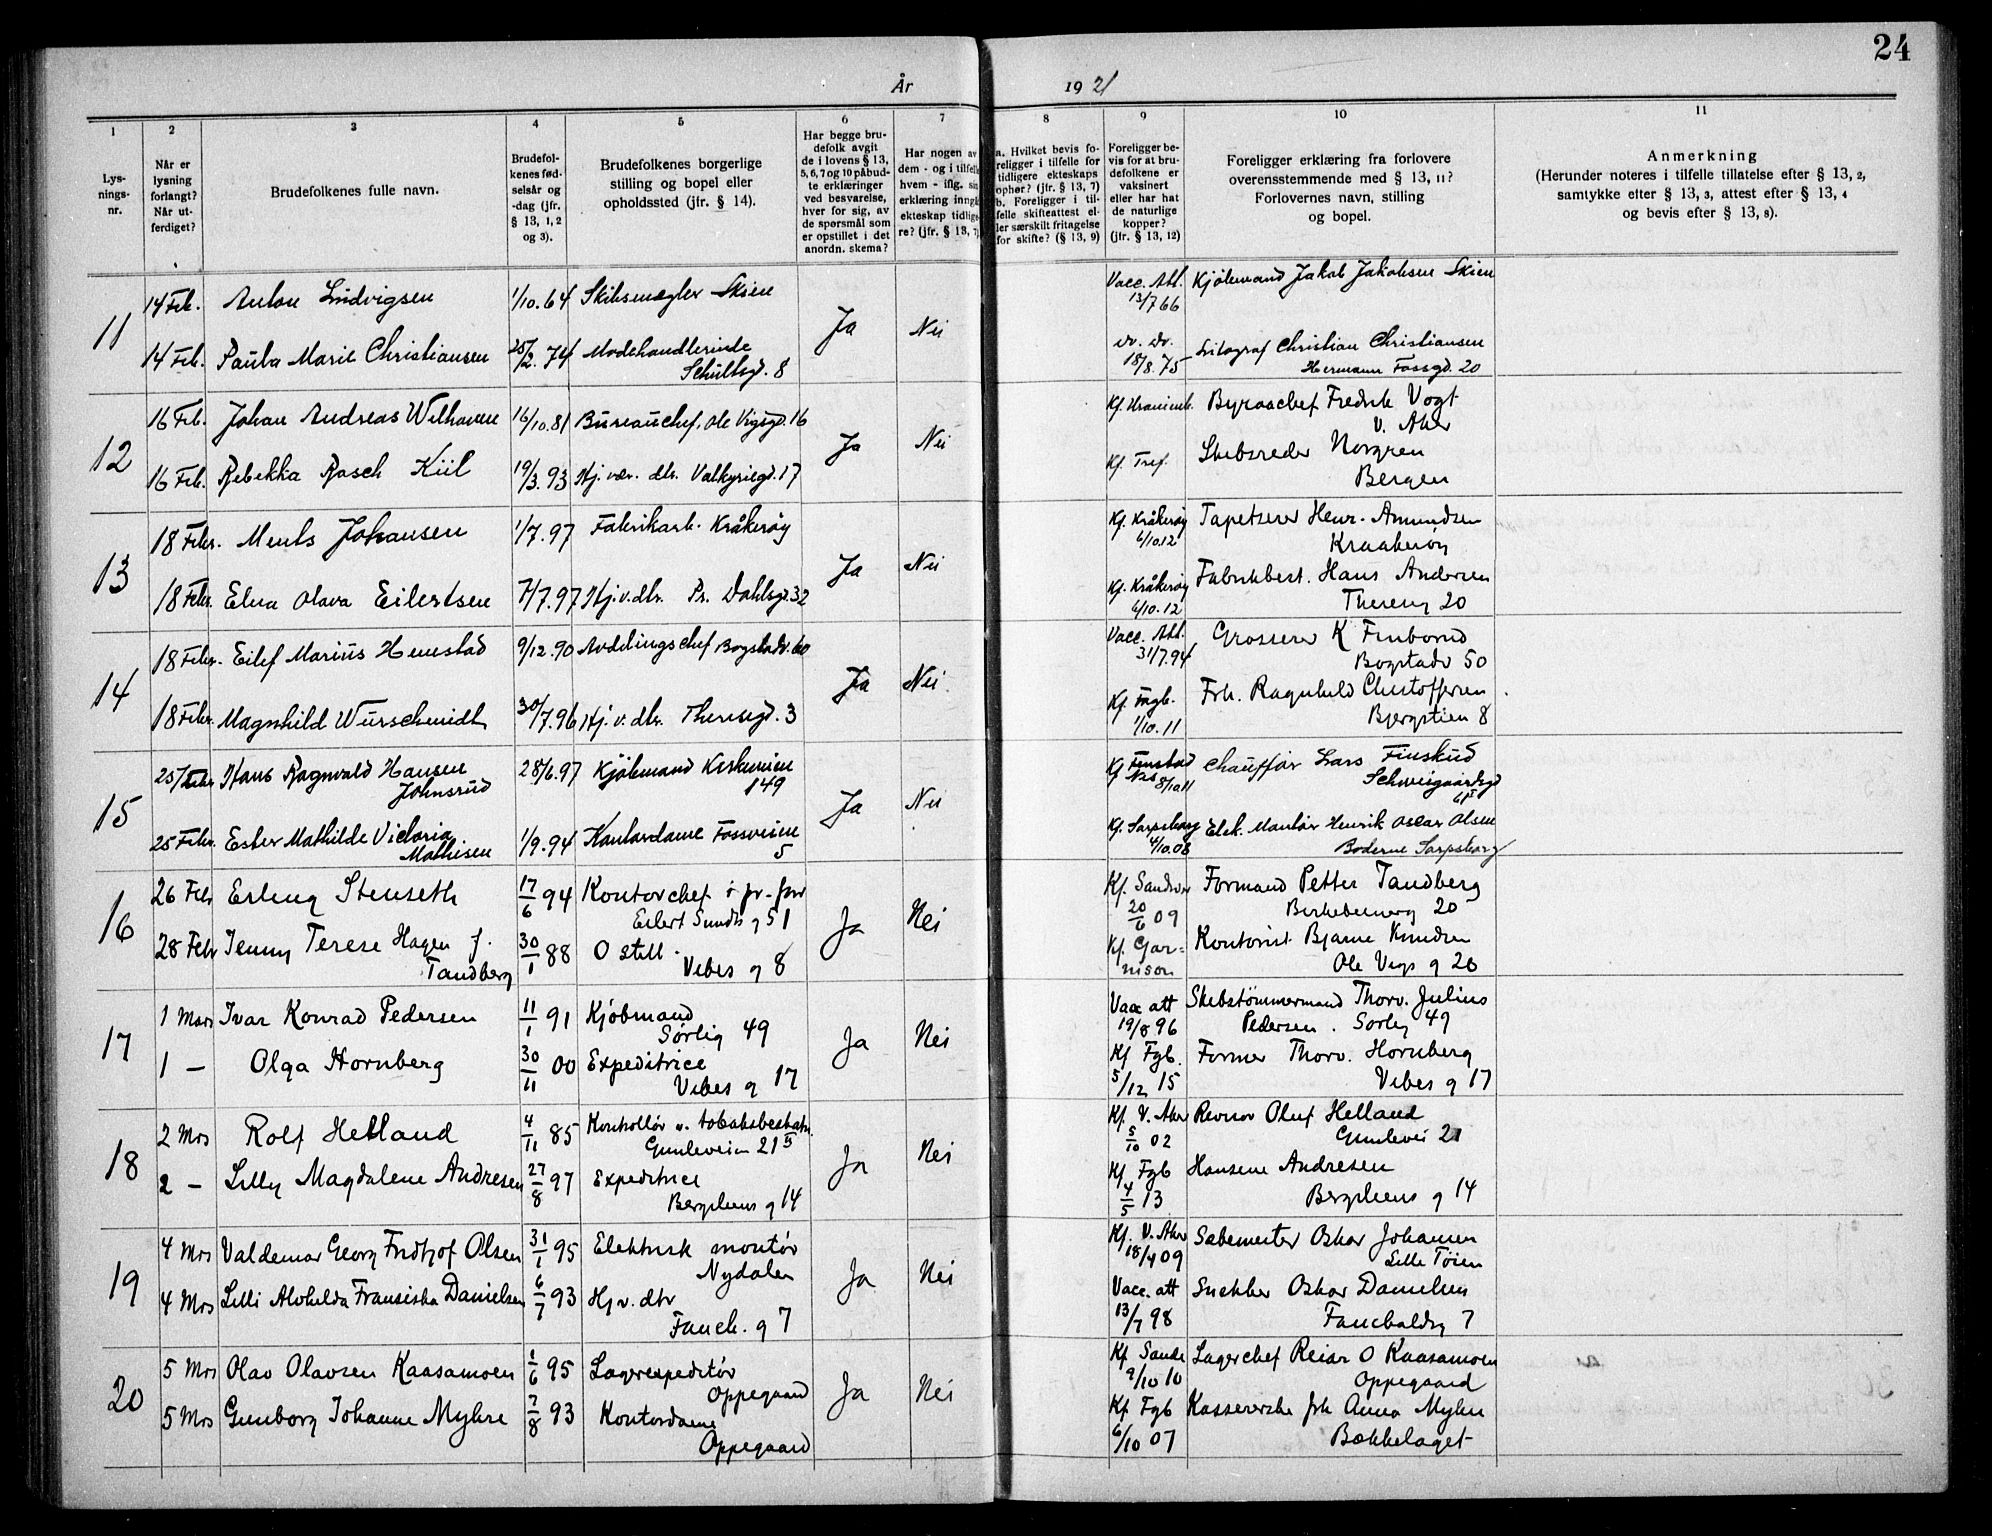 24
År 1921
1 2 3 4 5 6 7 8 9 10 11
Lysningsnr.
Når er lysning forlangt? Når utferdiget?
Brudefolkenes fulle navn.
Brudefolkenes fødselsår og -dag (jfr. § 13, 1, 2 og 3).
Brudefolkenes borgerlige stilling og bopel eller opholdssted (jfr. § 14).
Har begge brudefolk avgit de i lovens § 13, 5, 6, 7 og 10 påbudte erklæringer ved besvarelse, hver for sig, av de spørsmål som er opstillet i det anordn. skema?
Har nogen av dem - og i tilfelle hvem - iflg. sin erklæring inngå ekteskap tidligere? (jfr. § 13, 7)
a. Hvilket bevis foreligger i tilfelle for tidligere ekteskaps ophør? (jfr. § 13, 7)
b. Foreligger i tilfelle skifteattest eller særskilt fritagelse for skifte? (§ 13, 9)
Foreligger bevis for at brudefolkene er vaksinert eller har hat de naturlige kopper? (jfr. § 13, 12)
Foreligger erklæring fra forlovere overensstemmende med § 13, 11? Forlovernes navn, stilling og bopel.
Anmerkning
(Herunder noteres i tilfelle tillatelse efter § 13, 2, samtykke efter § 13, 3, attest efter § 13, 4 og bevis efter § 13, 8).
11
14 Feb. Anton Ludvigsen 1/10.64 Skibsmegler Skien Ja Nei Vacc. Att. 13/7 66 Kjøbmand Jakob Jakobsen Skien
14 Feb. Paula Marie Christiansen 25/2.74 Modehandlerinde Schultsgd. 8 do. do. 18/8.75 Litograf Christian Christiansen Hermann Fossgd. 20
12
16 Feb. Johan Andreas Welhaven 16/10.81 Bureauchef, Ole Vigsgd. 16 Ja Nei Kf. Uranienb. Byraachef Fredrik Vogt V. Aker
16 Feb. Rebekka Rasch Kiil 19/3.93 Hj. vær. dtr. Valkyriegd. 17 Kf. Tref. Skibsreder Norgren Bergen
13
18 Febr. Johansen 1/7.97 Fabrikarb. Kråkerøy Ja Nei Kf. Kråkerøy 6/10.12 Tapetserer Henr. Amundsen Kraakerøy
18 Febr. Elna Olava Eilertsen 7/7.97 Hj. v. dtr. Pr. Dahlsgd. 32 Kf. Kråkerøy 6/10.12 Fabrikbest. Hans Andersen Thereseg 20
14
18 Febr. Eilef Marius Hemstad 9/12.90 Avdelingschef Bogstadv. 60 Ja Nei. Vacc. Att. 31/7.94 Grosserer K Bogstadv 50
18 Febr. Magnhild Würschmidt 30/7.96 Hj. v. dtr. Theresegd. 3 Kf. Fagb. 1/10.11 Frk. Ragnhild Christoffersen Bjergstien 8
15
25/Febr Hans Ragnvald Hansen Johnsrud 28/6.97 Kjøbmand Kirkeveien 149 Ja Nei Kf Nes 8/10 11 Chauffør Lars Finskud Schweigaardsgd 61 I
25 Febr. Ester Mathilde Victoria Mathisen 1/9.94 Kontordame Fossveien 5 Kf. Sarpsborg 4/10.08 Elek. Montør Henrik Oscar Olsen Sarpsborg
16
26 Feb Erling Stenseth 17/6 94 Kontorchef i pr-forr Eilert Sundts g 51 Ja Nei Kf. Sandsvær 20/6 09 Formand Petter Tandberg Birkebeinerg 20
28 Febr Jenny Terese Hagen f. Tandberg 30/1 88 O still. Vibes g 8 Kf. Garnison Kontorist Bjarne Knudsen Ole Vigs g 20
17
1 Mars Ivar Konrad Pedersen 11/1 91 Kjøbmand Sørlig 49 Ja Nei Vacc att 19/8 96 Skibstømmermand Thorv. Julius Pedersen. Sørlig 49
1 — Olga Hornberg 30/11 00 Expeditrice Vibes g 17 Kf Fgb. 5/12 15 Former Thorv. Hornberg Vibes g 17
18
2 Mrs Rolf Helland 4/11 85 Kontrollør v. tobaksbeskatn. Gunleveien 21 Ja Nei Kf V. Aker 5/10 02 Revisor Oluf Helland Gunlevei 21
2 — Lilly Magdalene Andresen 27/8 97 Expeditrice Bergsliens g 14 Kf Fgb 4/5 13 Andresen Bergsliens g 14
19
4 Mrs Valdemar Georg Fridtjof Olsen 31/1 95 Elektrisk montør Nydalen Ja Nei Kf. V. Aker 18/4 09 Oskar Johansen Lille Tøien
4 Mrs Lilli Alvhilda Fransiska Danielsen 6/7 93 Hj v. dtr Fauch. g 7 Vacc. att 13/7 98 Snekker Oskar Danielsen Fauchaldsg 7
20
5 Mrs Olav Olavsen Kaasamoen 1/6 95 Lagerexpeditør Oppegaard Ja Nei Kf Sande 9/10 10 Lagerchef Reiar O Kaasamoen Oppegaard
5 Mrs Gunborg Johanne Myhre 7/8 93 Kontordame Oppegaard Kf Fgb 6/10 07 Kassererske frk Anna Myhre Bækkelaget